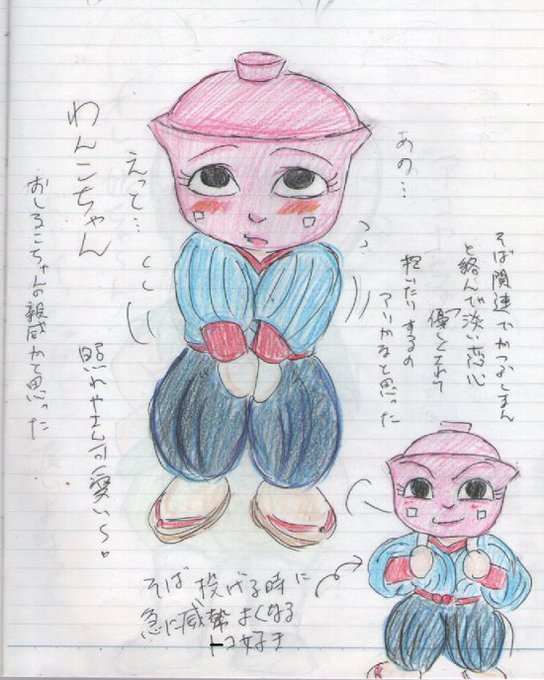 そば関連でかつぶしまん
と絡んで淡い恋心
優しくされて
抱いたりするの
アリかなと思った
あの…
えっと…
わんこちゃん
おしるこちゃんの親戚かと思った
照れやさん可愛い〜。
そば投げる時に
急に威勢よくなる
トコ好き